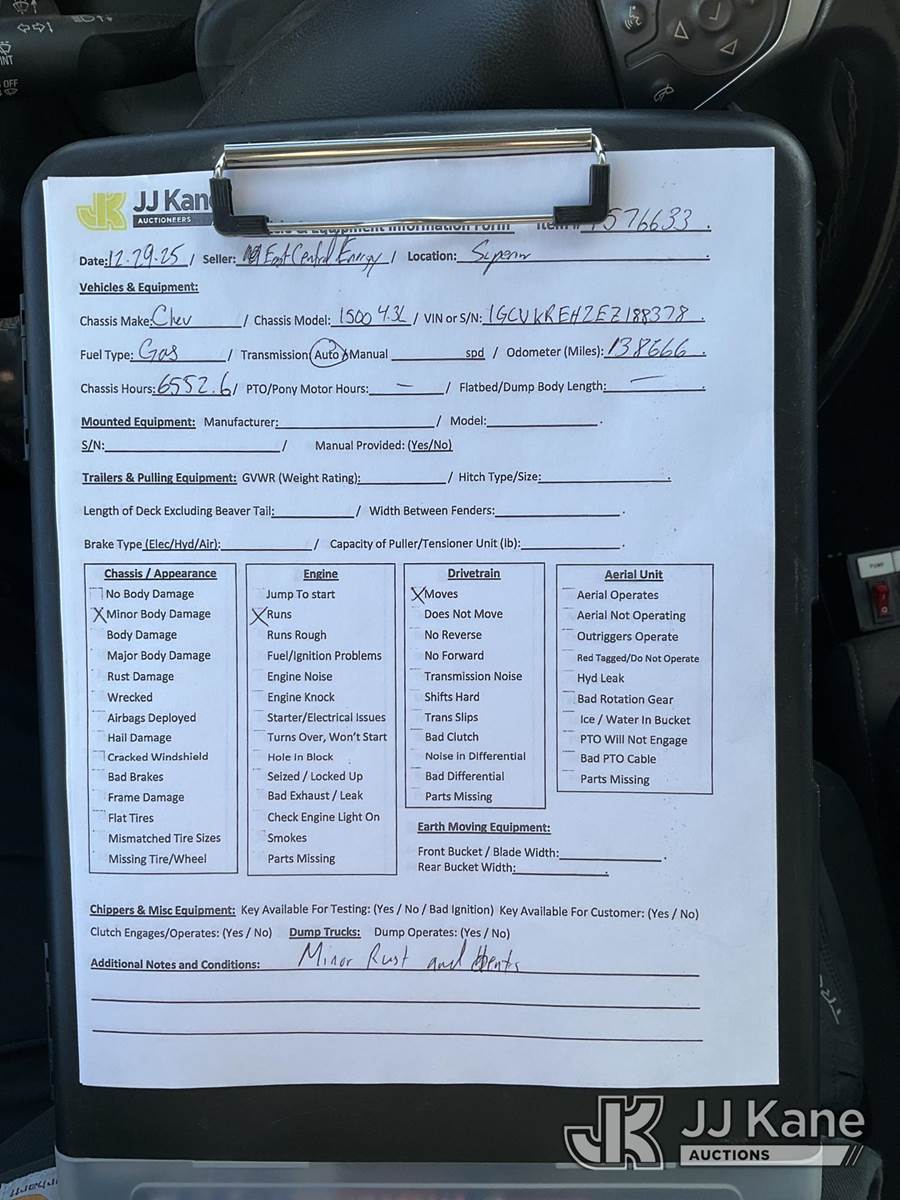 OFF
JK JJ Kane
AUCTIONEERS
& Equipment Information Form Item # 576633 .
Date: 12.29.25 / Seller: East Central Energy / Location: Superior .
Vehicles & Equipment:
Chassis Make: Chev / Chassis Model: 1500 4.3L / VIN or S/N: 1GCVKREH2EZ188378 .
Fuel Type: Gas / Transmission: Auto / Manual ____ spd / Odometer (Miles): 138666 .
Chassis Hours: 6552.6 / PTO/Pony Motor Hours: — / Flatbed/Dump Body Length: — .
Mounted Equipment: Manufacturer: ____ / Model: ____ .
S/N: ____ / Manual Provided: (Yes/No)
Trailers & Pulling Equipment: GVWR (Weight Rating): ____ / Hitch Type/Size: ____ .
Length of Deck Excluding Beaver Tail: ____ / Width Between Fenders: ____ .
Brake Type (Elec/Hyd/Air): ____ / Capacity of Puller/Tensioner Unit (lb): ____ .
Chassis / Appearance
No Body Damage
X Minor Body Damage
Body Damage
Major Body Damage
Rust Damage
Wrecked
Airbags Deployed
Hail Damage
Cracked Windshield
Bad Brakes
Frame Damage
Flat Tires
Mismatched Tire Sizes
Missing Tire/Wheel
Engine
Jump To start
X Runs
Runs Rough
Fuel/Ignition Problems
Engine Noise
Engine Knock
Starter/Electrical Issues
Turns Over, Won't Start
Hole In Block
Seized / Locked Up
Bad Exhaust / Leak
Check Engine Light On
Smokes
Parts Missing
Drivetrain
X Moves
Does Not Move
No Reverse
No Forward
Transmission Noise
Shifts Hard
Trans Slips
Bad Clutch
Noise in Differential
Bad Differential
Parts Missing
Aerial Unit
Aerial Operates
Aerial Not Operating
Outriggers Operate
Red Tagged/Do Not Operate
Hyd Leak
Bad Rotation Gear
Ice / Water In Bucket
PTO Will Not Engage
Bad PTO Cable
Parts Missing
Earth Moving Equipment:
Front Bucket / Blade Width: ____ .
Rear Bucket Width: ____ .
Chippers & Misc Equipment: Key Available For Testing: (Yes / No / Bad Ignition) Key Available For Customer: (Yes / No)
Clutch Engages/Operates: (Yes / No) Dump Trucks: Dump Operates: (Yes / No)
Additional Notes and Conditions: Minor Rust and dents
PUMP
JK JJ Kane
AUCTIONS